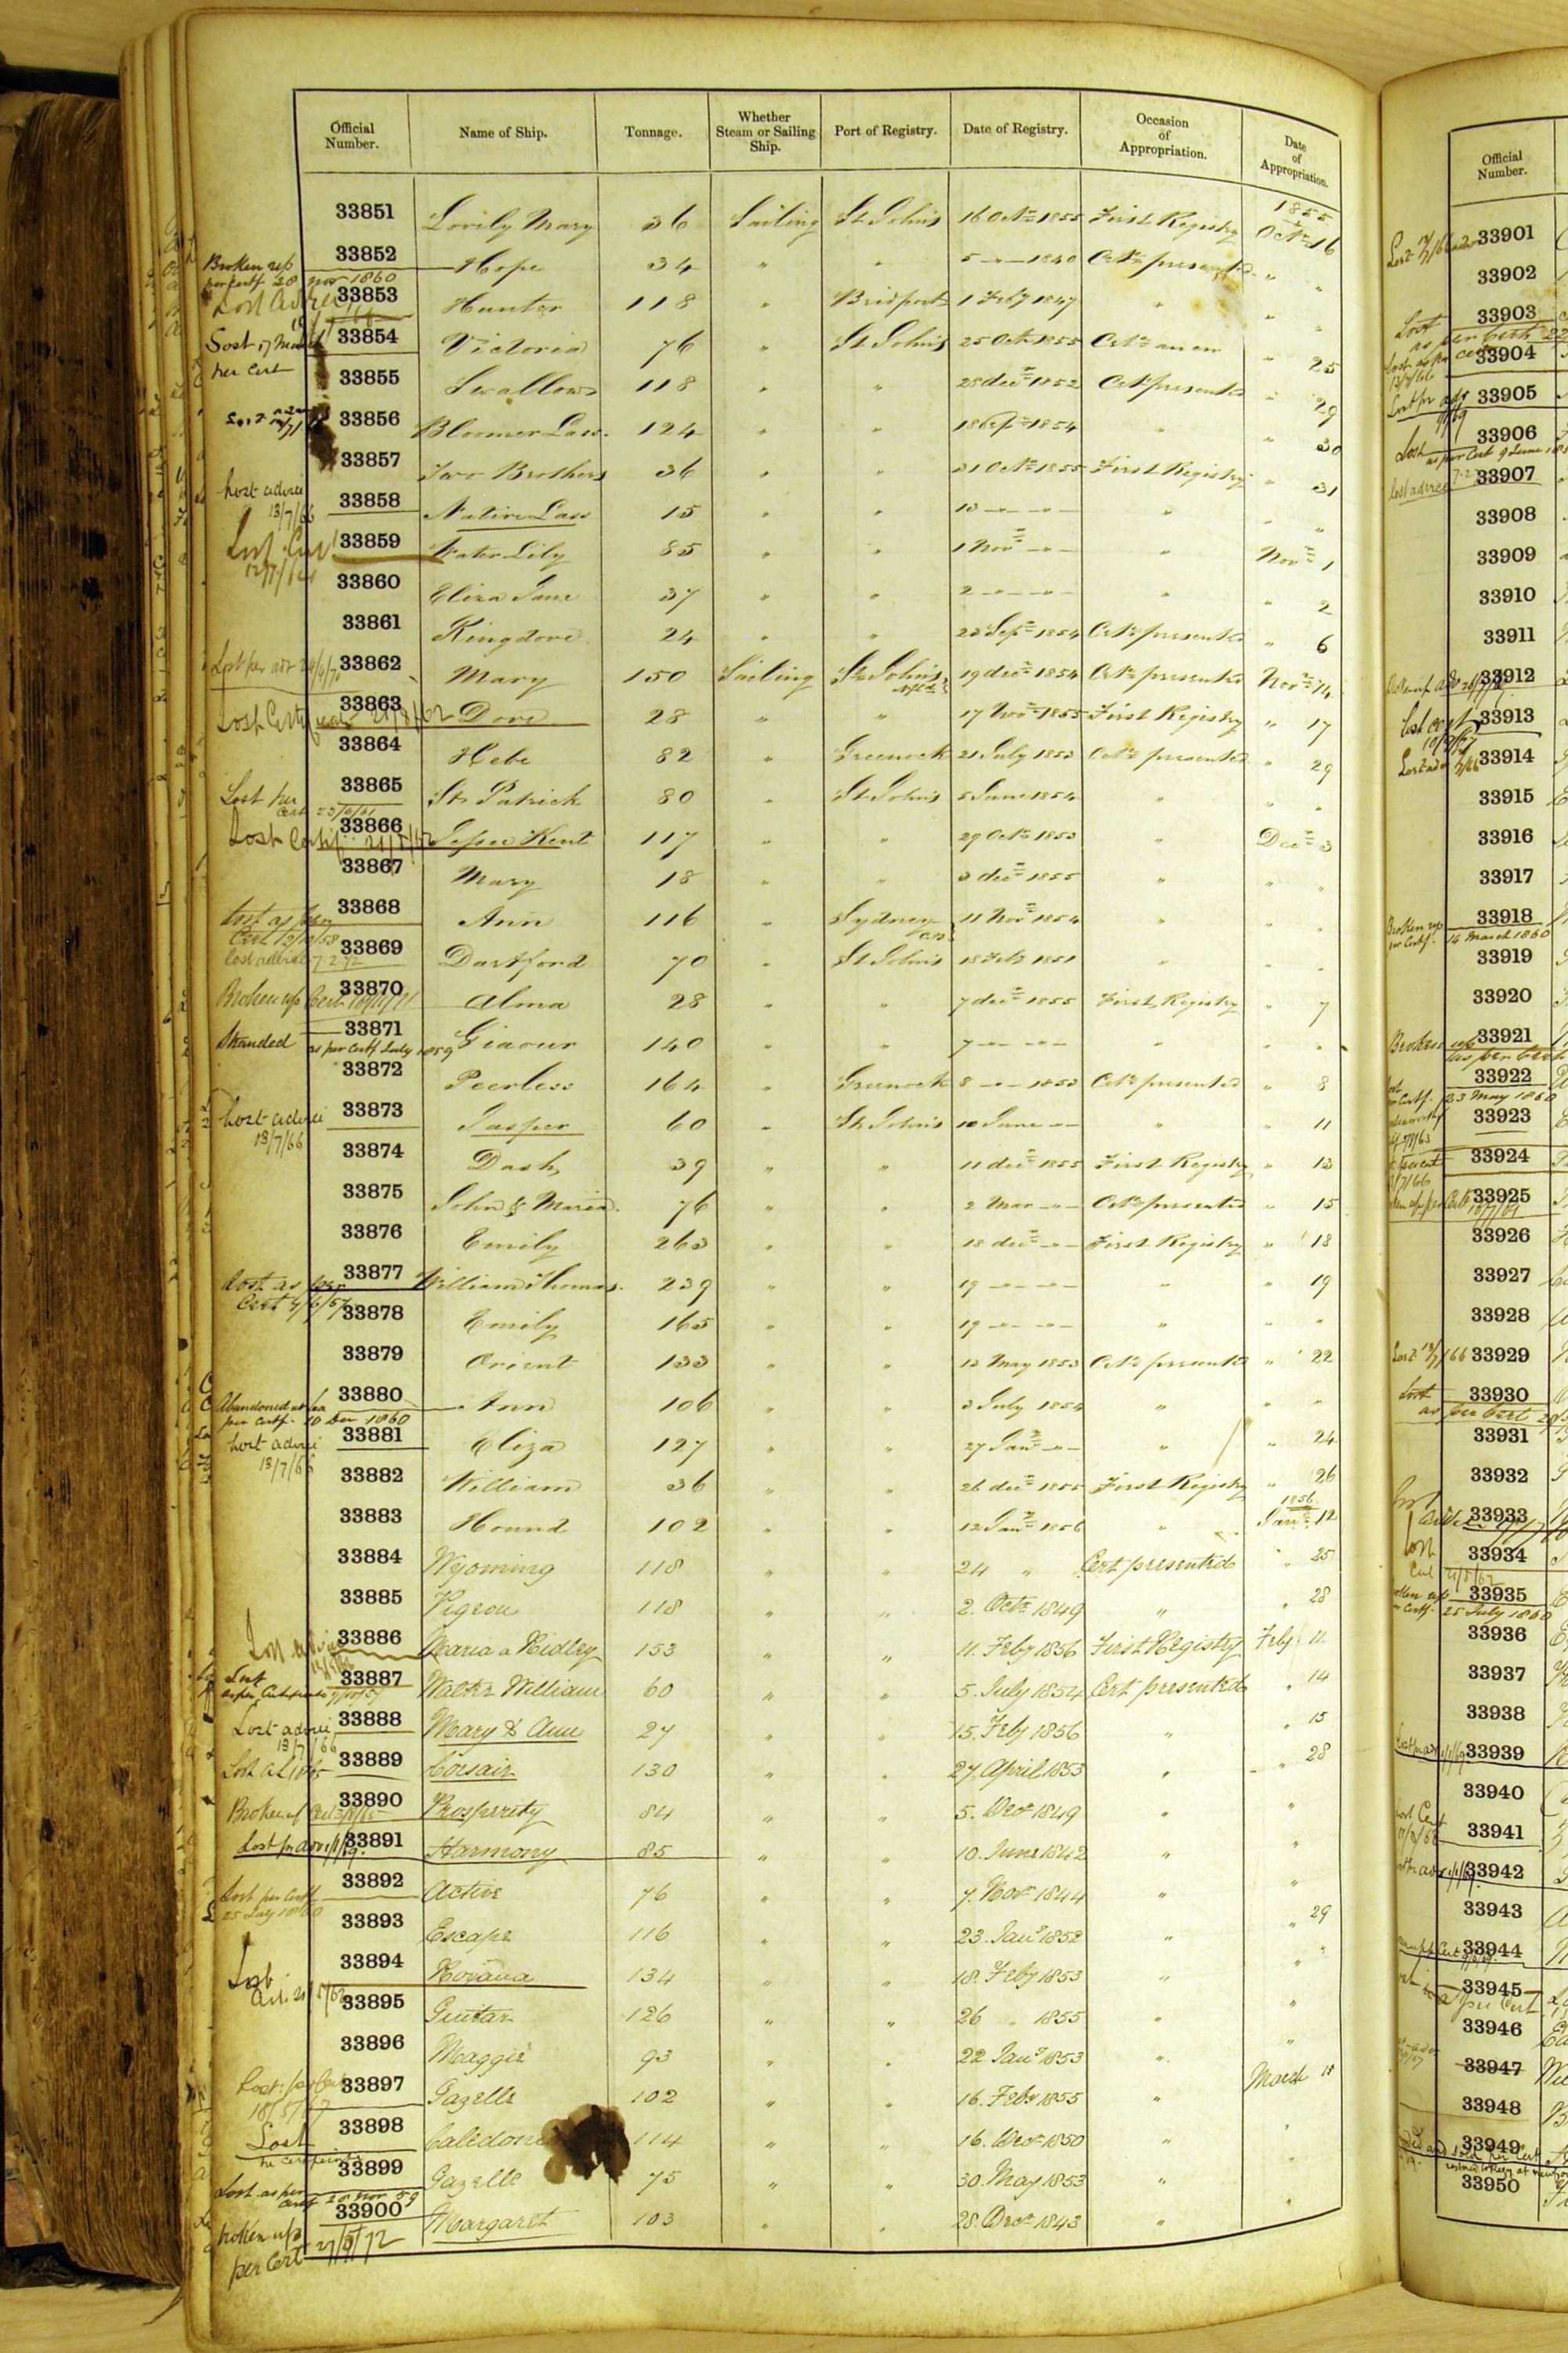 Official Number. Name of Ship. Tonnage. Whether Steam or Sailing Ship. Port of Registry. Date of Registry. Occasion of Appropriation. Date of Appropriation.
1855
33851 Lovily Mary 36 Sailing St. John's 16 Octr 1855 First Registry Octr 16
Broken up per certf 28 Nov 1860 33852 Hope 34 " " 5 1840 Certe presented " "
33853 Hunter 118 " Bridport 1 Feby 1847 " " "
33854 Victoria 76 " St. John's 25 Octr 1855 " 25
33855 Swallow 118 " " 28 decr 1852 Certe presented " 29
33856 Bloomer Lass 124 " " 1854 " " 30
33857 Two Brothers 36 " " 31 Octr 1855 First Registry " 31
Lost advice 13/7/66 33858 Native Lass 15 " " 13 " " " "
33859 Water Lily 85 " " 1 Novr " " Novr 1
33860 Eliza Jane 37 " " 2 " " " 2
33861 Ringdove 24 " " 23 Sepr 1854 Certe presented " 6
33862 Mary 150 Sailing St. John's 19 decr 1854 Certe presented Novr 14
33863 Dove 28 " " 17 Novr 1855 First Registry " 17
33864 Hebe 82 " Greenock 21 July 1853 Certe presented " 29
Lost per Cert 33865 St. Patrick 80 " St. John's 5 June 1854 " " "
Lost Certif. 33866 Kent 117 " " 29 Octr 1853 " Decr 3
33867 Mary 18 " " 3 decr 1855 " " "
Lost as per Cert 13/10/58 33868 Ann 116 " Sydney C.B. 11 Novr 1854 " " "
Lost advice 7.2.72 33869 Dartford 70 " St. John's 18 Feb 1851 " " "
Broken up Cert 33870 Alma 28 " " 7 decr 1855 First Registry " 7
Stranded as per Certf July 1859 33871 Giaour 140 " " 7 " " " "
33872 Peerless 164 " Greenock 8 1853 Certe presented " 8
Lost advice 13/7/66 33873 Jasper 60 " St. John's 10 June " " 11
33874 Dash 39 " " 11 decr 1855 First Registry " 13
33875 John & Maria 76 " " 2 Mar " Certe presented " 15
33876 Emily 263 " " 18 decr " First Registry " 18
Lost as per Cert 4/6/57 33877 William Thomas 239 " " 19 " " " 19
33878 Emily 165 " " 19 " " " "
33879 Orient 133 " " 12 May 1853 Certe presented " 22
Abandoned at sea per certf. 10 Dec 1860 33880 Ann 106 " " 3 July 1854 " " "
Lost advice 13/7/66 33881 Eliza 127 " " 27 Jany " " " 24
33882 William 36 " " 26 decr 1855 First Registry " 26
1856
33883 Hound 102 " " 12 Jany 1856 " Jany 12
33884 Wyoming 118 " " 24 " Cert presented " 25
33885 Pigeon 118 " " 2. Octr 1849 " " 28
33886 Maria a Ridley 153 " " 11. Feby 1856 First Registry Feby 11
Lost as per Certificate 33887 Walter William 60 " " 5. July 1854 Cert presented " 14
Lost advice 13/7/66 33888 Mary & Ann 27 " " 15. Feby 1856 " " 15
33889 Corsair 130 " " 27. April 1853 " " 28
Broken up 33890 Prosperity 84 " " 5. Decr 1849 " "
Lost pr adv 33891 Harmony 85 " " 10. June 1842 " "
Lost per Certf 25 July 1860 33892 Active 76 " " 7. Novr 1844 " "
33893 Escape 116 " " 23. Jany 1852 " " 29
Lost Cert. 21/5/62 33894 Havana 134 " " 18. Feby 1853 " "
33895 Guitar 126 " " 26 " 1855 " "
33896 Maggie 93 " " 22 Jany 1853 " "
33897 Gazelle 102 " " 16. Feby 1855 " March 11
Lost 33898 Caledonia 114 " " 16. Decr 1850 " "
Lost as per Certf 28 Nov 59 33899 Gazelle 75 " " 30. May 1853 " "
Broken up per Cert 27/9/72 33900 Margaret 103 " " 28. Decr 1843 " "
Official Number.
33901
33902
33903
33904
33905
33906
33907
33908
33909
33910
33911
33912
33913
33914
33915
33916
33917
Broken up per Certf. 14 March 1860 33918
33919
33920
33921
23 May 1860 33922
33923
33924
33925
33926
33927
33928
33929
33930
33931
33932
33933
33934
25 July 1860 33935
33936
33937
33938
33939
33940
33941
33942
33943
33944
33945
33946
33947
33948
33949
33950